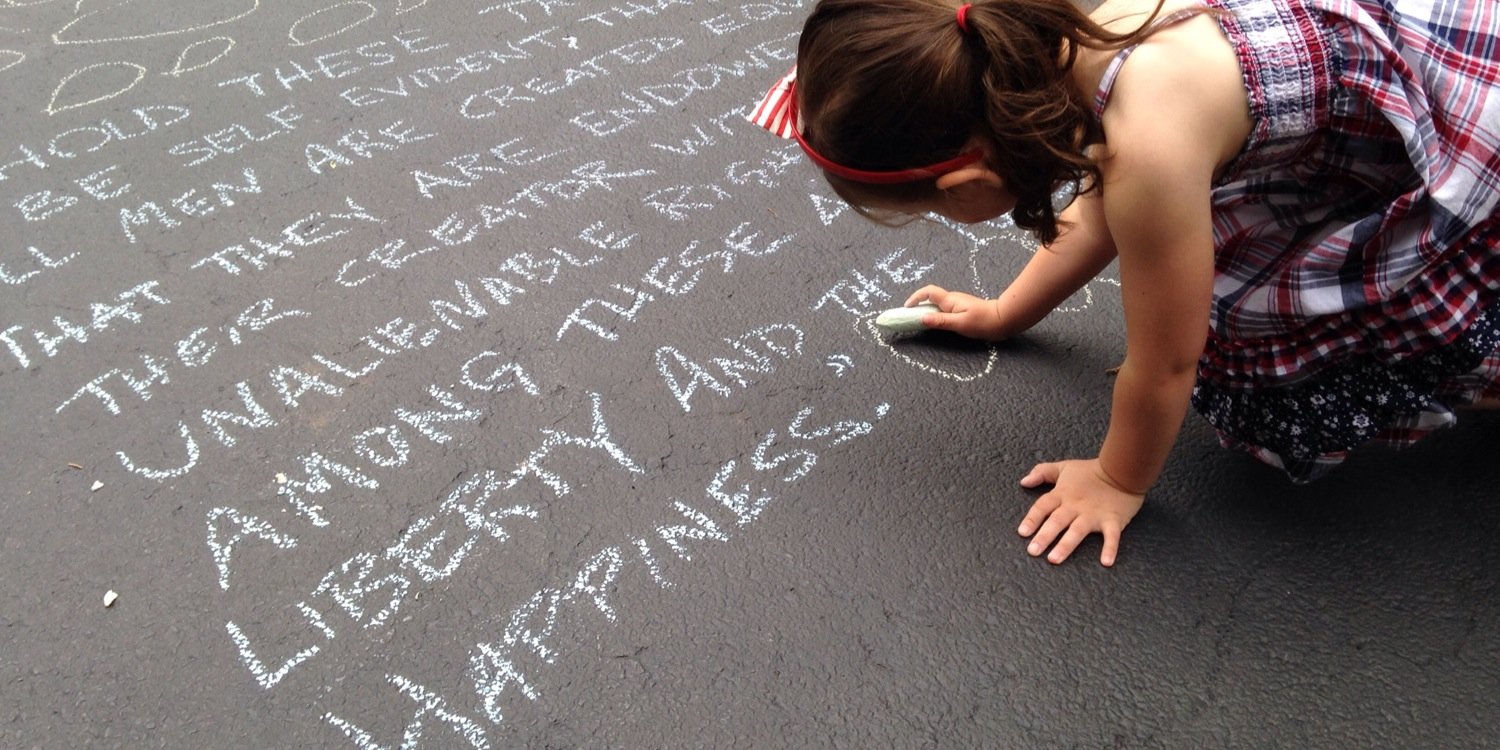 HOLD THESE
BE SELF EVIDENT, THA
LL MEN ARE CREATED EQ
THAT THEY ARE ENDOWE
THEIR CREATOR WIT
UNALIENABLE RIGH
AMONG THESE
LIBERTY AND THE
HAPPINESS."